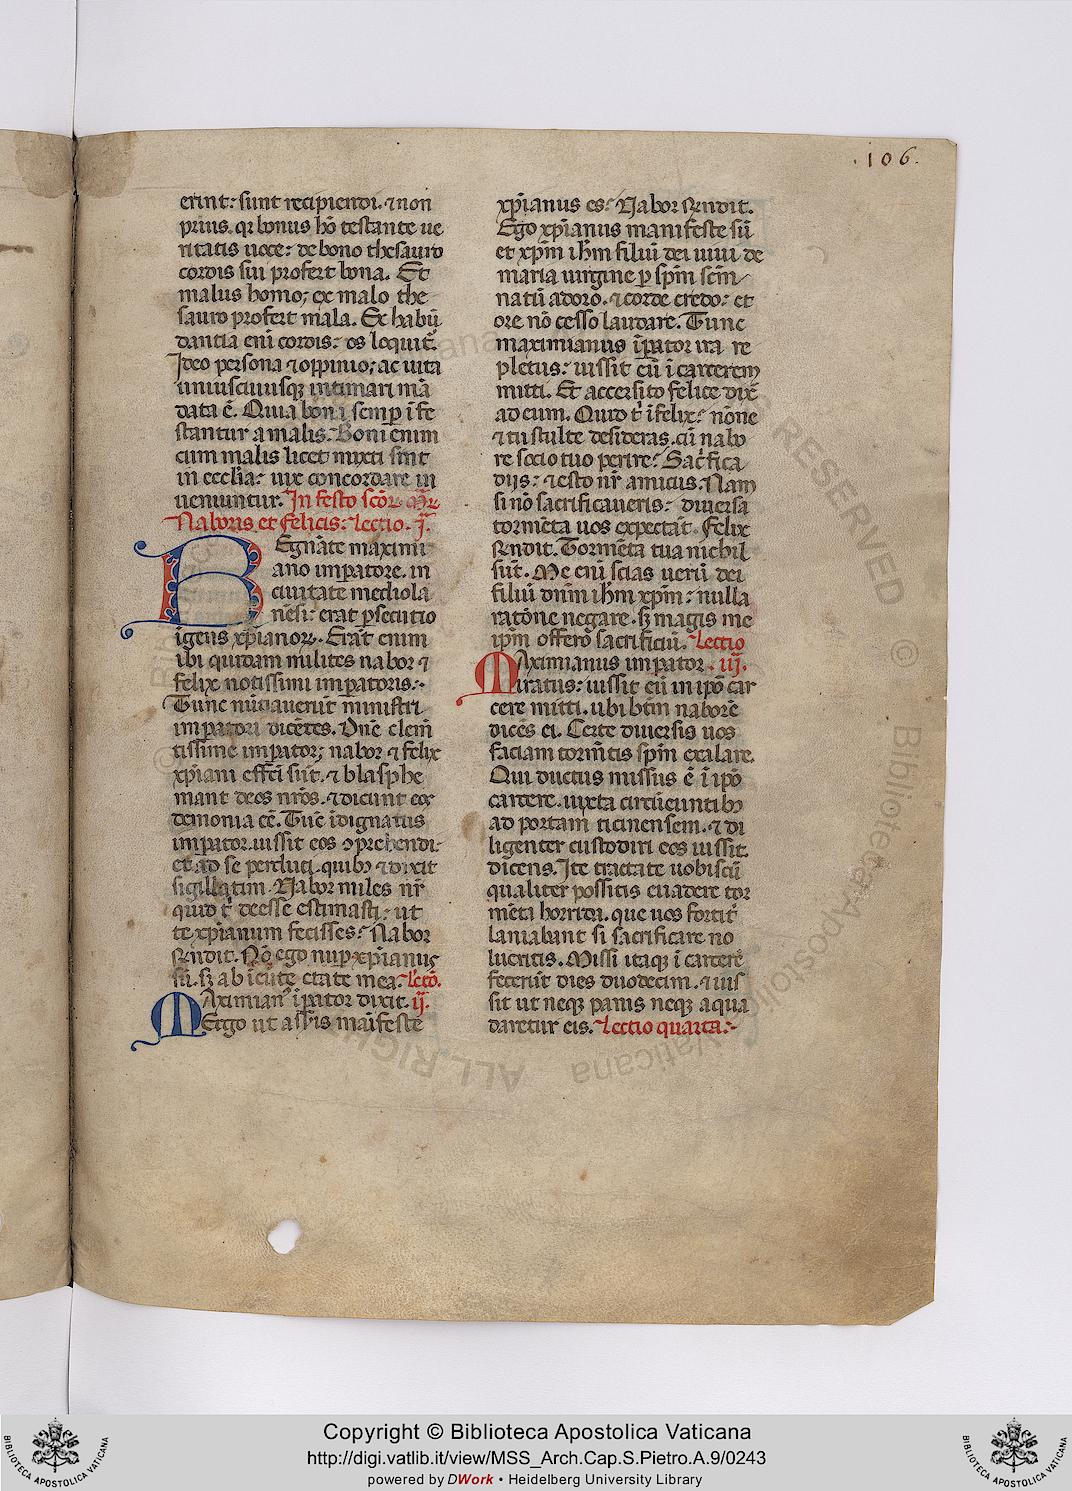 .106.
erint: sunt recipiendi. ⁊ non
prius. qr bonus hō testante ue
ritatis uoce: de bono thesauro
cordis sui profert bona. Et
malus homo; ex malo the
sauro profert mala. Ex habū
dantia eni cordis: os loquit̄.
Ideo persona ⁊ oppinio; ac uita
uniuscuiusqꝫ intimari mā
data ē. Quia boni semꝑ īfe
stantur a malis. Boni enim
cum malis licet mixti sint
in ecclīa: uix concordare in
ueniuntur. In festo scōꝝ mr̄
Naboris et felicis: Lectio. j.
Regnāte maximi
ano impatore. in
ciuitate mediola
nēsi: erat ꝑsecutio
īgens xp̄ianoꝝ. Erāt enim
ibi quidam milites nabor ⁊
felix notissimi impatoris:
Tunc nūtiauerūt ministri
impatori dicētes. Dn̄e clem̄
tissime impator; nabor ⁊ felix
xp̄iani effcī sūt. ⁊ blasphe
mant deos nr̄os. ⁊ dicunt eos
demonia eē. Tūc īdignatus
impator. iussit eos ꝯprehendi.
et ad se perduci. quibꝰ ⁊ dixit
sigillatim. Nabor miles nr̄
quid t' deesse estimasti: ut
te xp̄ianum fecisses: Nabor
rn̄dit. Nō ego nuꝑ xp̄ianus
sū. sꝫ ab īeūte etate mea. Lectō.
Maximian' īpator dixit. ij.
Ergo ut assīs maīfeste
xp̄ianus es: Nabor rn̄dit.
Ego xp̄ianus manifeste sū
et xp̄m ihm̄ filiū dei uiui de
maria uirgine ꝑ sp̄m scm̄
natū adoro. ⁊ corde credo: et
ore nō cesso laudare. Tunc
maximianus īpator ira re
pletus: iussit eū ī carcerem
mitti. Et accersito felice dix̄
ad eum. Quid t' ī felix: nōne
⁊ tu stulte desideras. cū nabo
re socio tuo perire: Sacrifica
diis: ⁊ esto nr̄ amicus. Nam
si nō sacrificaueris: diuersa
tormēta uos expectāt. Felix
rn̄dit. Tormēta tua nichil
sūt. Me eni scias uerū dei
filiū dnm̄ ihm̄ xp̄m: nulla
ratōne negare. sꝫ magis me
ip̄m offero sacrificiū. Lectio
Maximianus impator. iij.
iratus: iussit eū in ip̄o car
cere mitti. ubi btm̄ naborē
dicēs ei. Certe diuersis uos
faciam torm̄tis sp̄m exalare.
Qui ductus missus ē ī ip̄o
carcere. iuxta circūeuntibꝰ
ad portam ticinensem. ⁊ di
ligenter custodiri eos iussit.
dicens. Ite tractate uobiscū
qualiter possitis euadere tor
mēta horrida. que uos fortit'
laniabunt si sacrificare no
lueritis. Missi itaqꝫ ī carcerē
fecerūt dies duodecim. ⁊ ius
sit ut neqꝫ panis neqꝫ aqua
daretur eis. Lectio quarta:
© Biblioteca Apostolica Vaticana
ALL RIGHTS RESERVED
Copyright © Biblioteca Apostolica Vaticana
http://digi.vatlib.it/view/MSS_Arch.Cap.S.Pietro.A.9/0243
powered by DWork • Heidelberg University Library
BIBLIOTECA APOSTOLICA VATICANA
BIBLIOTECA APOSTOLICA VATICANA